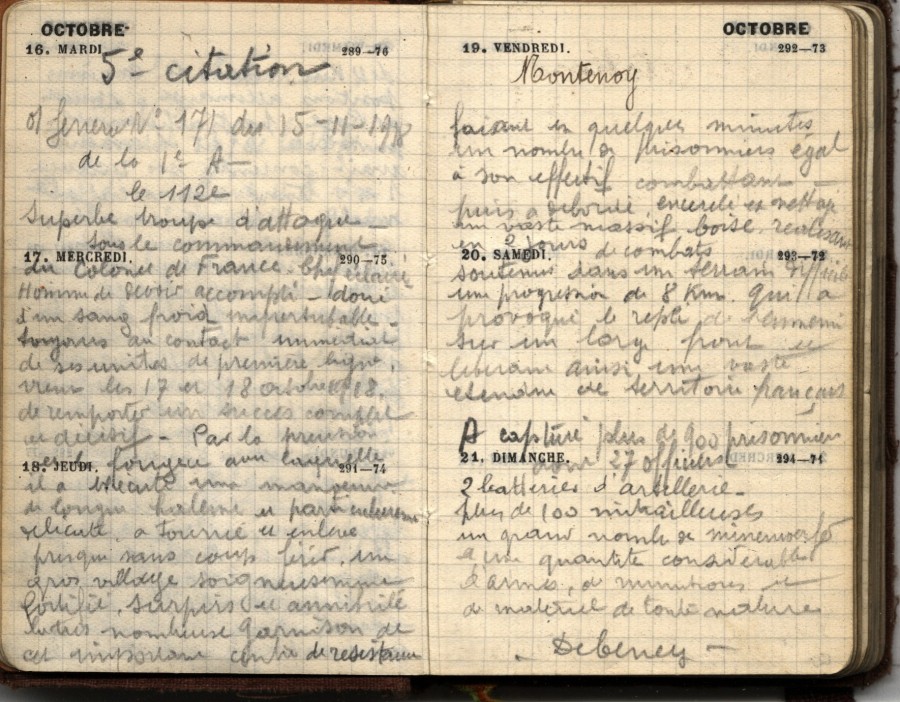 OCTOBRE
16. MARDI 289—76
5e citation
Ol General N° 171 du 15-11-1918
de la 1e A—
le 112e
Superbe troupe d'attaque
sous le commandement
17. MERCREDI. 290—75
du Colonel de France. Chef éclairé
Homme de devoir accompli — doué
d'un sang froid imperturbable
toujours au contact immédiat
de ses unités de première ligne,
vient les 17 et 18 octobre 1918.
de remporter un succès complet
et décisif — Par la précision
18. JEUDI. 291—74
et la fougue avec laquelle
il a exécuté une manoeuvre
de longue haleine et particulièrement
délicate, a tourné et enlevé
presque sans coup férir, un
gros village soigneusement
fortifié, surpris et annihilé
la très nombreuse garnison de
cet important centre de résistance
OCTOBRE
19. VENDREDI. 292—73
Montenoy
faisant en quelques minutes
un nombre de prisonniers égal
à son effectif combattant —
puis a débordé encerclé et nettoyé
un vaste massif boisé, réalisant
en 2 jours de combats
20. SAMEDI. 293—72
soutenus dans un terrain difficile
une progression de 8 Km. qui a
provoqué le repli de l'ennemi
sur un large front et
libérant ainsi une vaste
étendue de territoire français
A capturé plus de 900 prisonniers
21. DIMANCHE. 294—71
dont 27 officiers
2 batteries d'artillerie —
plus de 100 mitrailleuses
un grand nombre de minenwerfer
et une quantité considérable
d'armes, de munitions et
de matériel de toute nature
— Debeney —